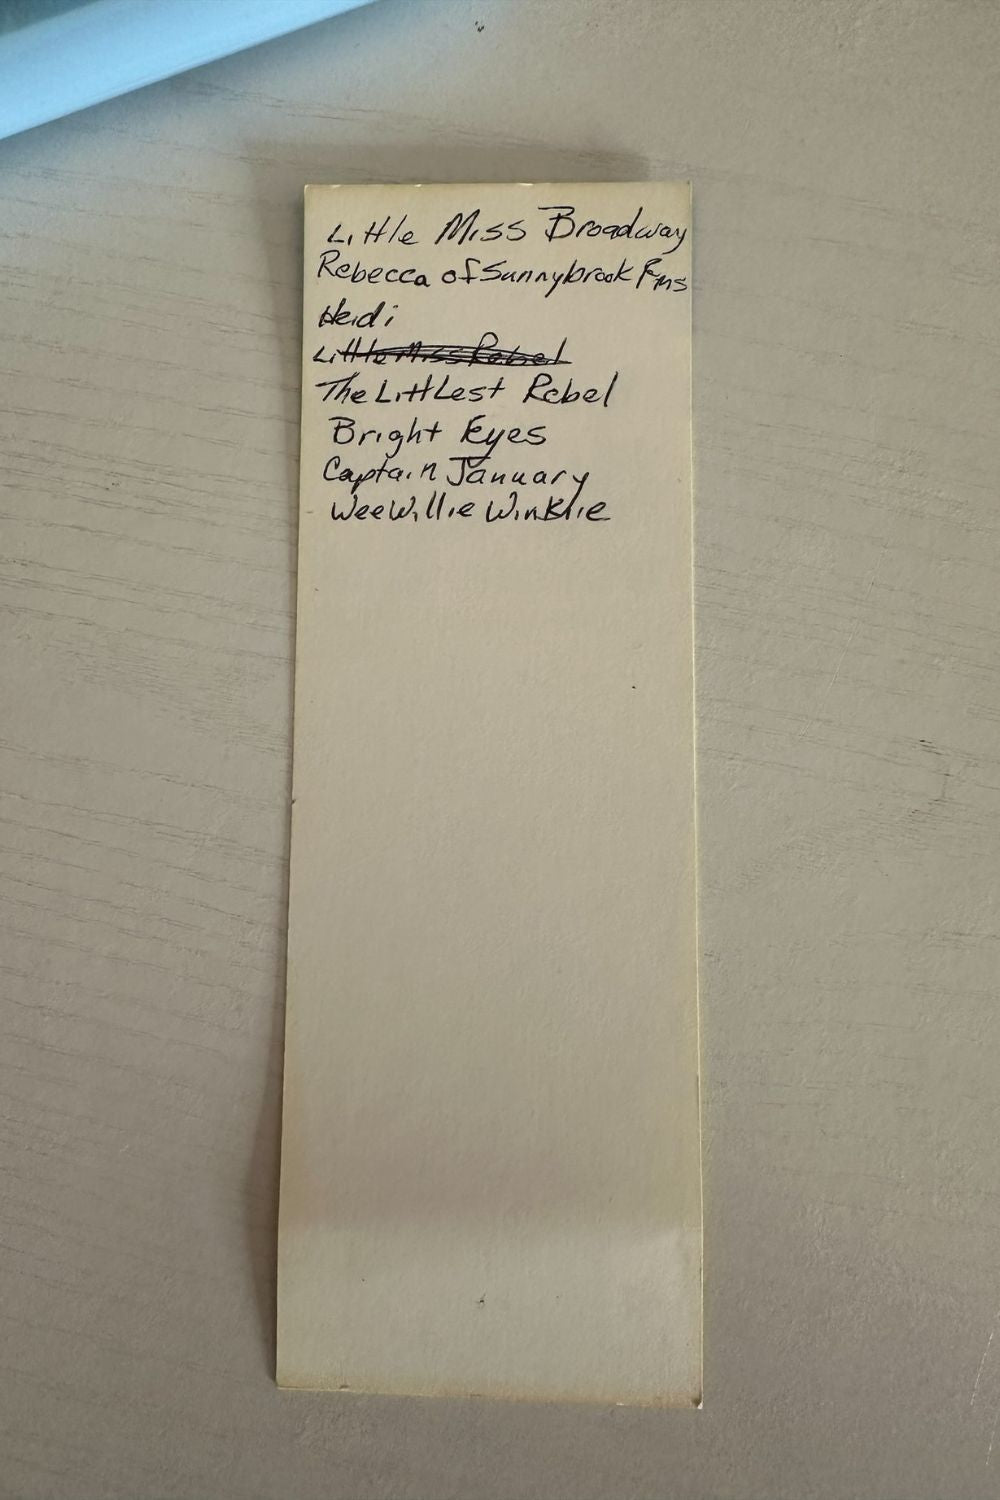 Little Miss Broadway
Rebecca of Sunnybrook Fms
Heidi
Little Miss Rebel
The LittLest Rebel
Bright Eyes
Captain January
Wee Willie Winkie